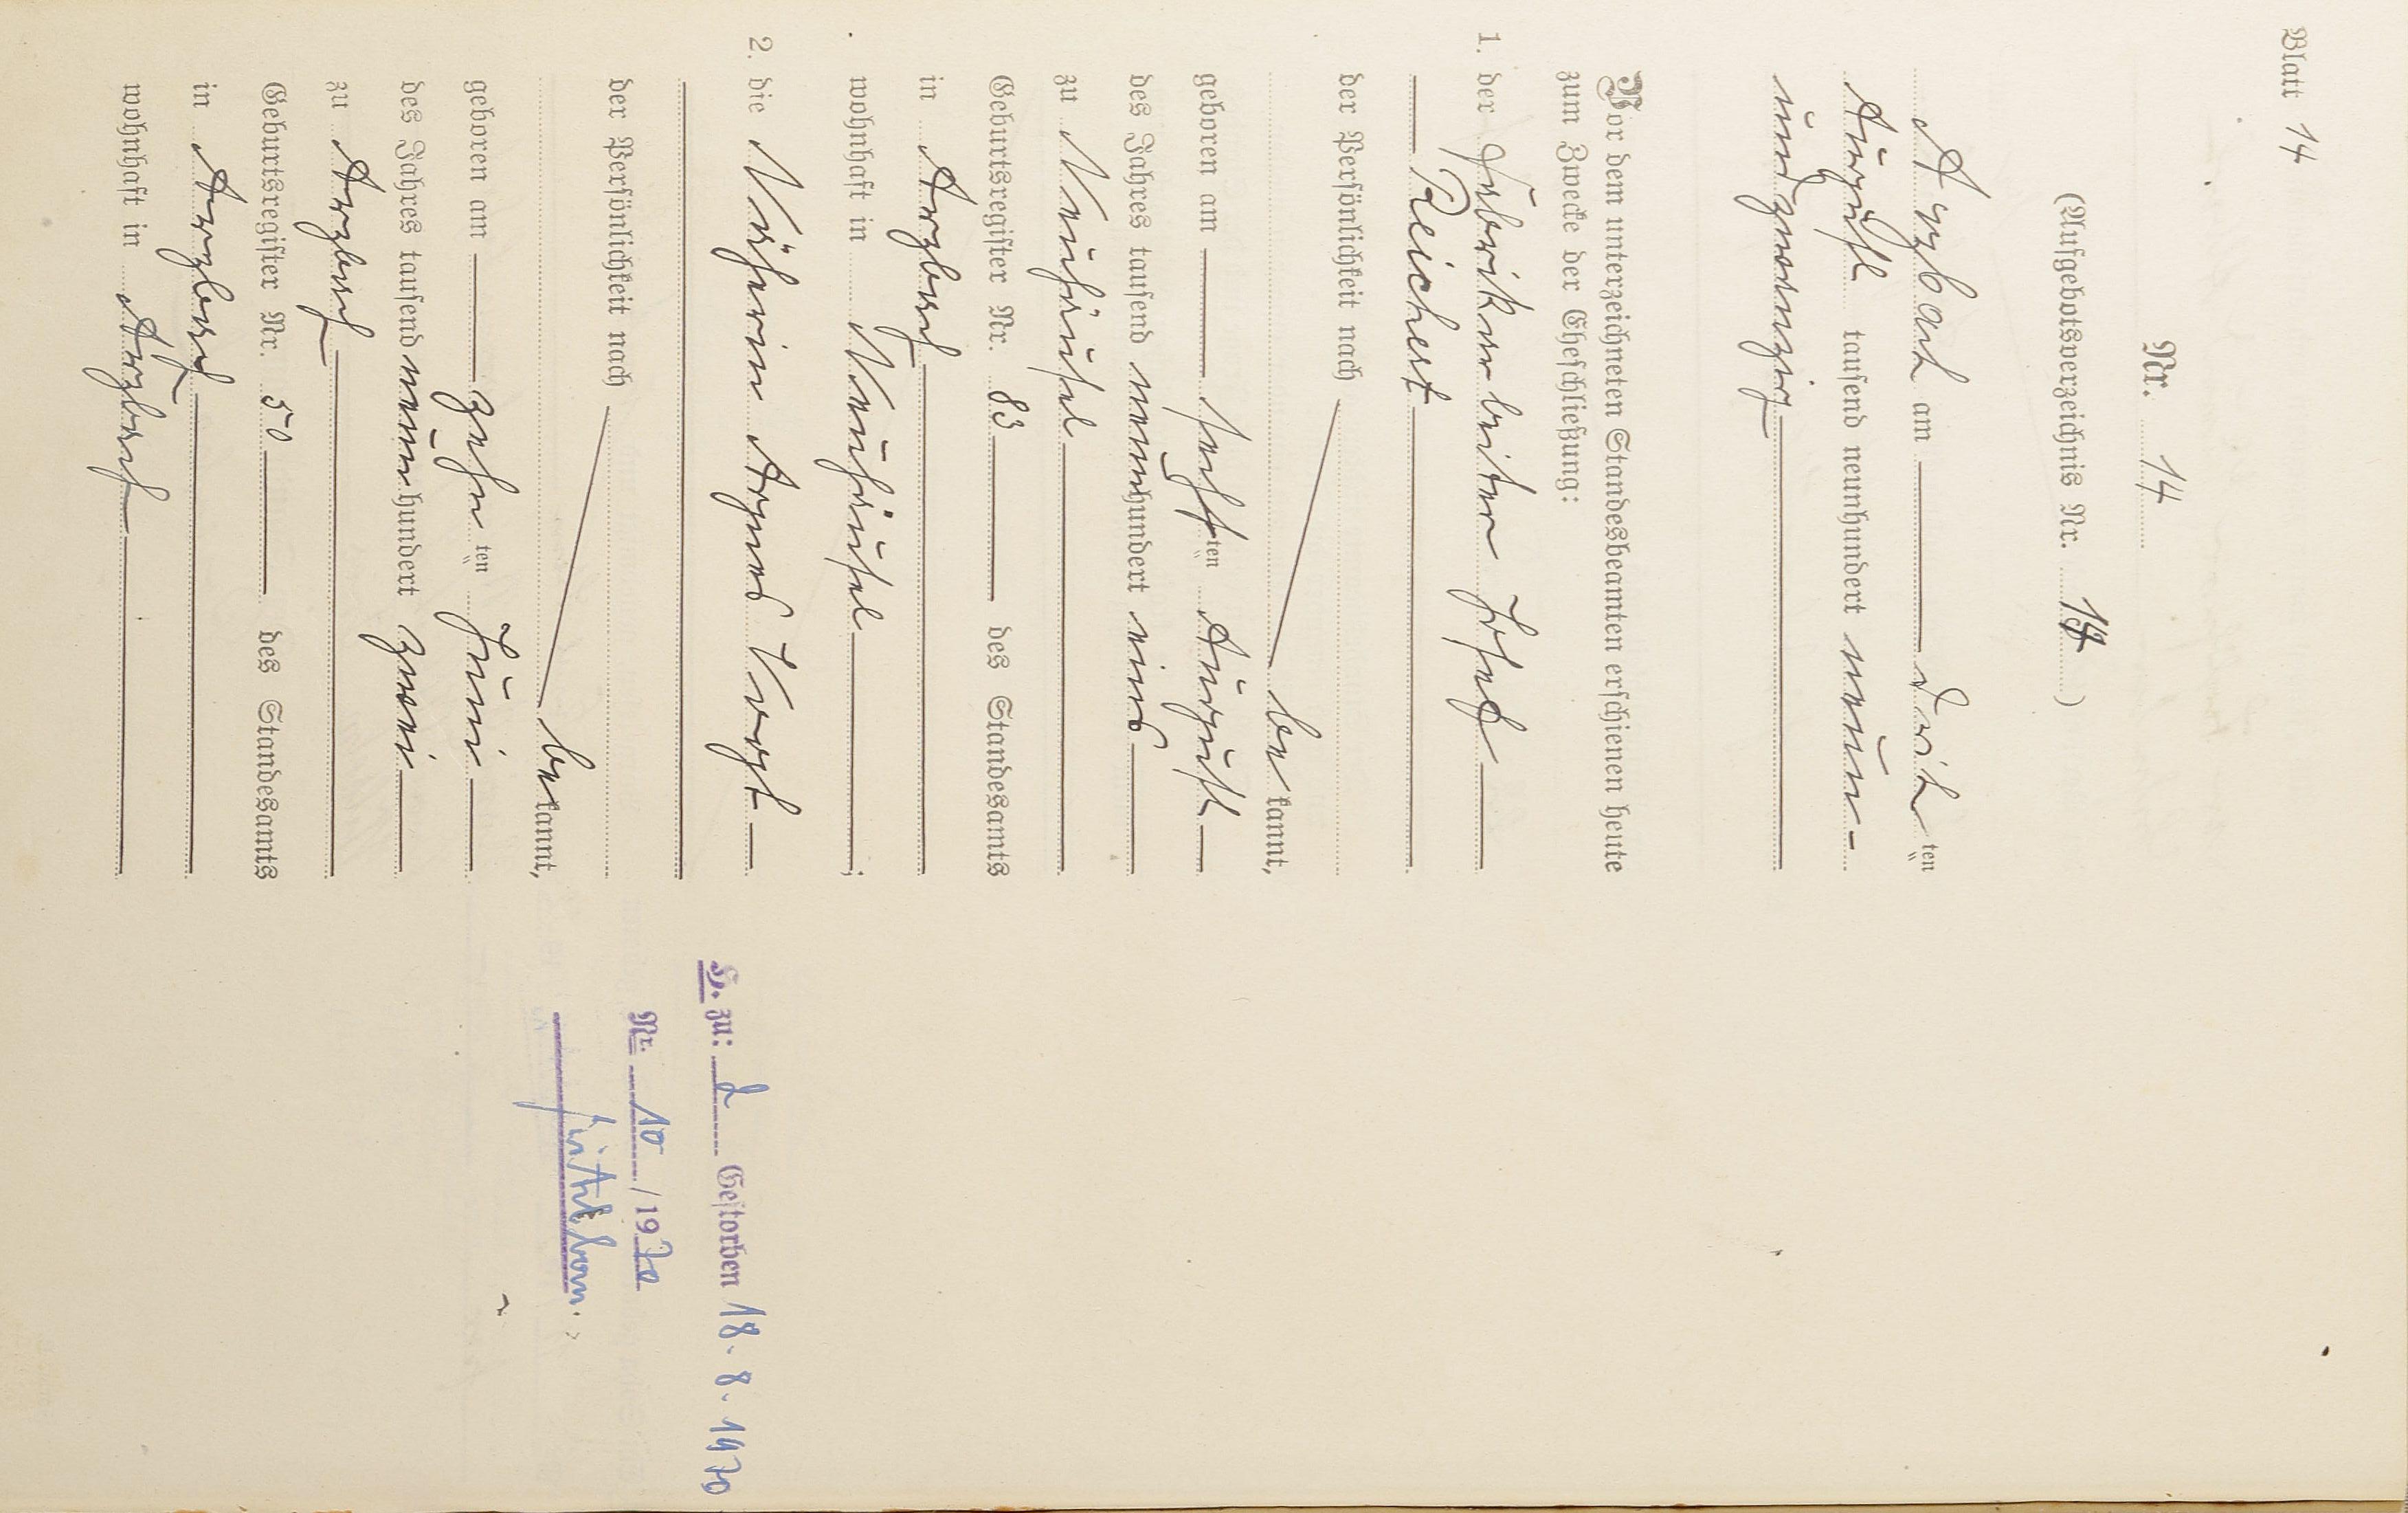 Blatt 14
Nr. 14
(Aufgebotsverzeichnis Nr. 14)
Arzbach am dritten
August tausend neunhundert neun-
undzwanzig
Vor dem unterzeichneten Standesbeamten erschienen heute
zum Zwecke der Eheschließung:
1. der Fabrikarbeiter Josef
Reichert
der Persönlichkeit nach
bekannt,
geboren am sechsten August
des Jahres tausend neunhundert eins
zu Neuhäusel
Geburtsregister Nr. 83 des Standesamts
in Arzbach
wohnhaft in Neuhäusel;
2. die Näherin Agnes Vogt
der Persönlichkeit nach
bekannt,
geboren am zehnten Juni
des Jahres tausend neunhundert zwei
zu Arzbach
Geburtsregister Nr. 50 des Standesamts
in Arzbach
wohnhaft in Arzbach
H. zu: 2 Gestorben 18. 8. 1970
Nr. 10 / 1970